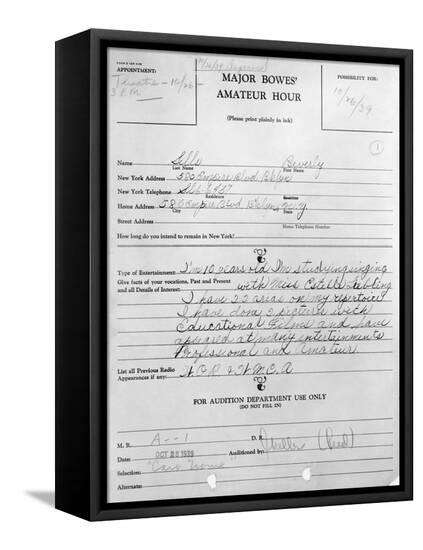 APPOINTMENT:
3 P.M.
MAJOR BOWES'
AMATEUR HOUR
(Please print plainly in ink)
POSSIBILITY FOR:
10/26/39
1
Name Sills Beverly
Last Name First Name
New York Address 580 Empire Blvd Bklyn
New York Telephone
Residence
Home Address 580 Empire Blvd Bklyn
City State
Street Address
Home Telephone Number
How long do you intend to remain in New York?
Type of Entertainment: I'm 10 years old I'm studying singing
Give facts of your vocations, Past and Present with Miss Estelle Liebling
and all Details of Interest: I have 22 arias on my repertoire
I have done 2 pictures with
Educational Films and have
appeared at many entertainments
Professional and Amateur
List all Previous Radio W.O.R. & W.M.C.A
Appearances if any:
FOR AUDITION DEPARTMENT USE ONLY
(DO NOT FILL IN)
M. R. A--1 D. R.
Date: OCT 26 1939 Auditioned by: (Reed)
Selection: "Caro Nome"
Alternate: